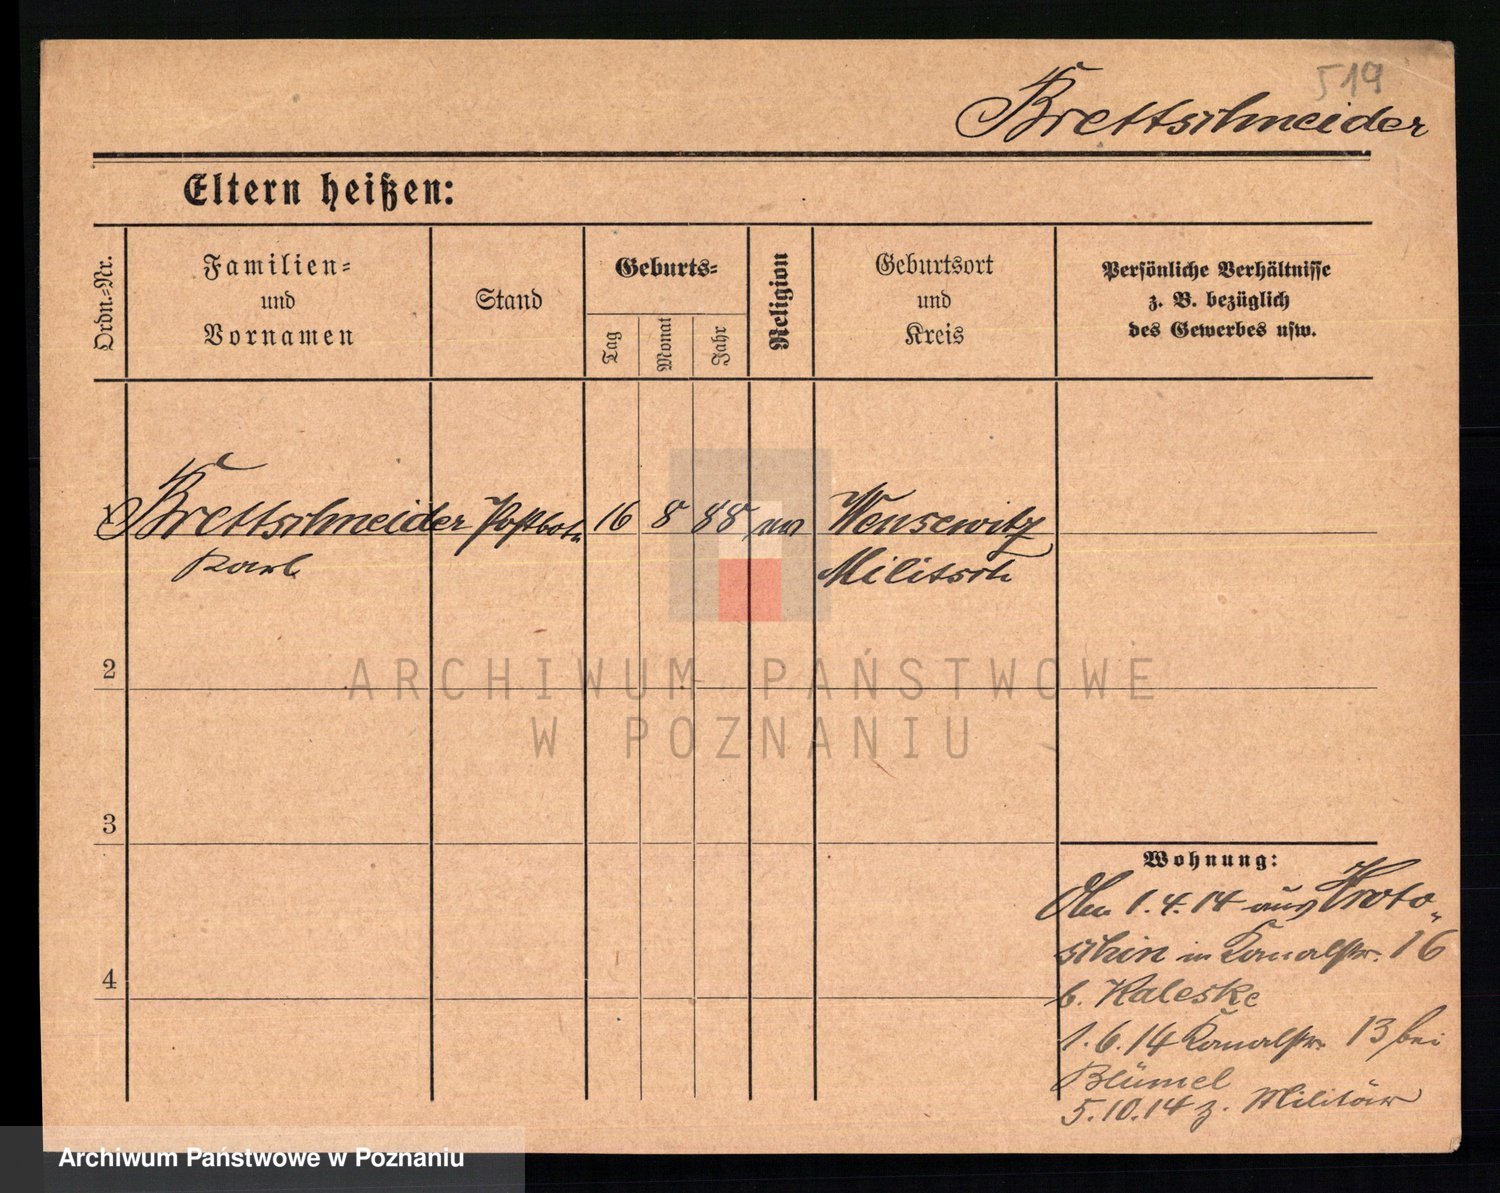 519
Brettschneider
Eltern heißen:
Ordn.-Nr.
Familien-
und
Vornamen
Stand
Geburts-
Tag
Monat
Jahr
Religion
Geburtsort
und
Kreis
Persönliche Verhältnisse
z. B. bezüglich
des Gewerbes usw.
1 Brettschneider Postbote 16 8 88 ev Wensewitz
Karl Militsch
2
3
4
Wohnung:
1.4.14 aus Kroto-
schin in Kanalstr. 16
b. Kaleske
1.6.14 Kanalstr. 13 bei
Blümel
5.10.14 z. Militär
ARCHIWUM PAŃSTWOWE
W POZNANIU
Archiwum Państwowe w Poznaniu